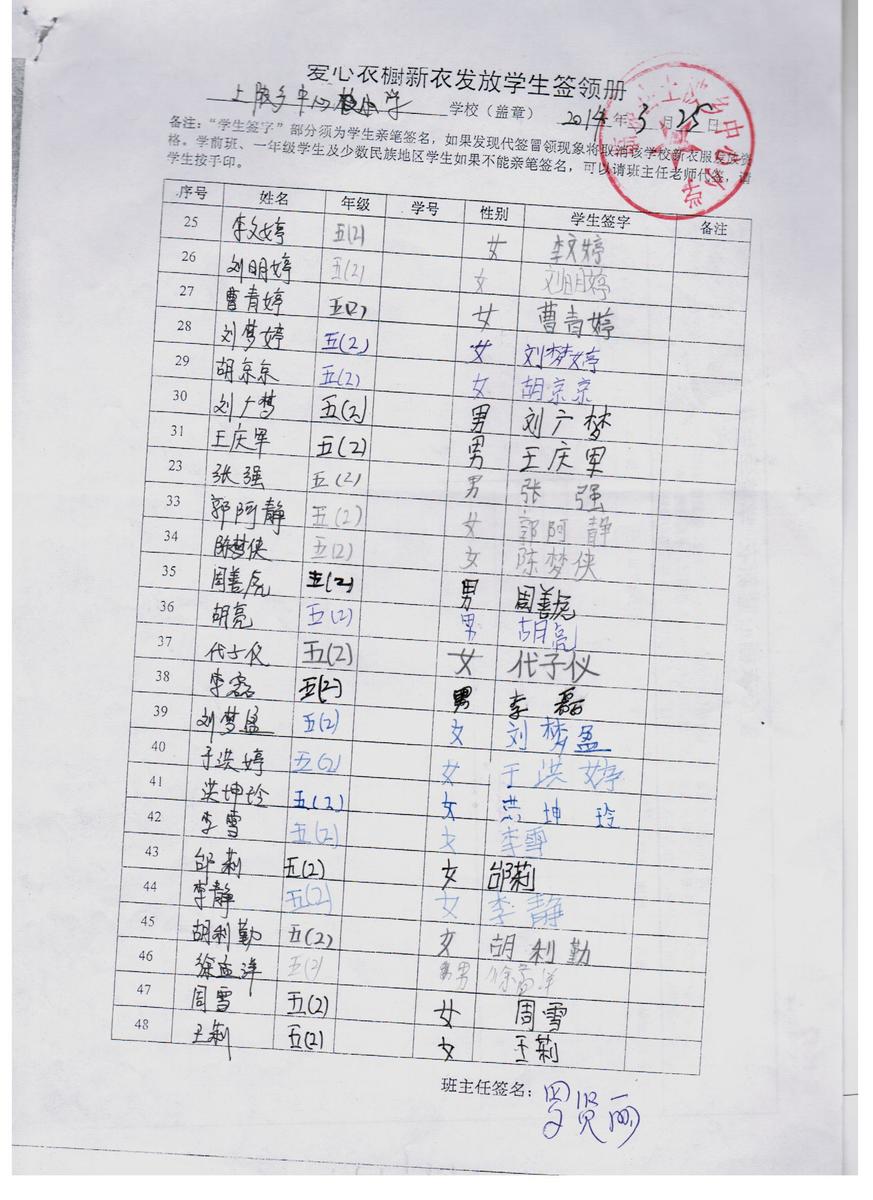 爱心衣橱新衣发放学生签领册
中心小学 学校（盖章） 2014年 3 月 25 日
备注：“学生签字”部分须为学生亲笔签名，如果发现代签冒领现象将取消该学校新衣服发放资
格。学前班、一年级学生及少数民族地区学生如果不能亲笔签名，可以请班主任老师代签，请
学生按手印。
序号 姓名 年级 学号 性别 学生签字 备注
25 李文婷 五(2) 女 李文婷
26 刘明婷 五(2) 女 刘明婷
27 曹青婷 五(2) 女 曹青婷
28 刘梦婷 五(2) 女 刘梦婷
29 胡京京 五(2) 女 胡京京
30 刘广梦 五(2) 男 刘广梦
31 王庆军 五(2) 男 王庆军
23 张强 五(2) 男 张强
33 郭阿静 五(2) 女 郭阿静
34 陈梦侠 五(2) 女 陈梦侠
35 周善虎 五(2) 男 周善虎
36 胡亮 五(2) 男 胡亮
37 代子仪 五(2) 女 代子仪
38 李磊 五(2) 男 李磊
39 刘梦盈 五(2) 女 刘梦盈
40 于洪婷 五(2) 女 于洪婷
41 洪坤玲 五(2) 女 洪坤玲
42 李雪 五(2) 女 李雪
43 邰莉 五(2) 女 邰莉
44 李静 五(2) 女 李静
45 胡利勤 五(2) 女 胡利勤
46 五(2) 男
47 周雪 五(2) 女 周雪
48 王莉 五(2) 女 王莉
班主任签名：罗贤丽